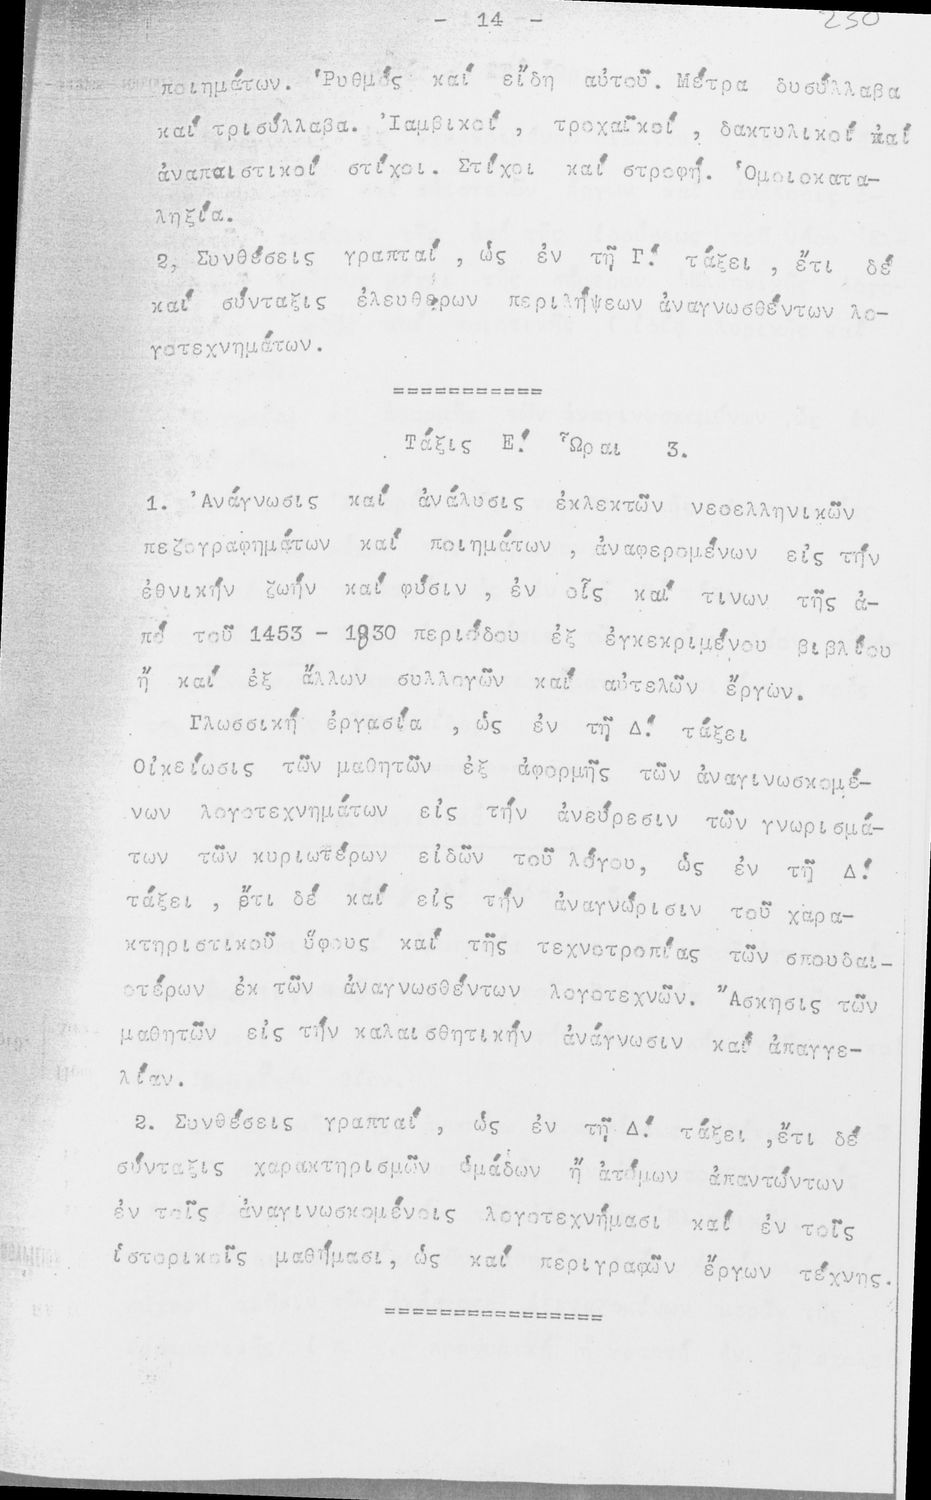 - 14 -
230
ποιημάτων. Ῥυθμός καί εἴδη αὐτοῦ. Μέτρα δυσύλλαβα
καί τρισύλλαβα. Ἰαμβικοί , τροχαϊκοί , δακτυλικοί καί
ἀναπαιστικοί στίχοι. Στίχοι καί στροφή. Ὁμοιοκατα-
ληξία.
2, Συνθέσεις γραπταί , ὡς ἐν τῇ Γ! τάξει , ἔτι δέ
καί σύνταξις ἐλευθέρων περιλήψεων ἀναγνωσθέντων λο-
γοτεχνημάτων.
===========
Τάξις Ε! Ὧραι 3.
1. Ἀνάγνωσις καί ἀνάλυσις ἐκλεκτῶν νεοελληνικῶν
πεζογραφημάτων καί ποιημάτων , ἀναφερομένων εἰς τήν
ἐθνικήν ζωήν καί φύσιν , ἐν οἷς καί τινων τῆς ἀ-
πό τοῦ 1453 - 1830 περιόδου ἐξ ἐγκεκριμένου βιβλίου
ἤ καί ἐξ ἄλλων συλλογῶν καί αὐτελῶν ἔργων.
Γλωσσική ἐργασία , ὡς ἐν τῇ Δ! τάξει
Οἰκείωσις τῶν μαθητῶν ἐξ ἀφορμῆς τῶν ἀναγινωσκομέ-
νων λογοτεχνημάτων εἰς τήν ἀνεύρεσιν τῶν γνωρισμά-
των τῶν κυριωτέρων εἰδῶν τοῦ λόγου, ὡς ἐν τῇ Δ!
τάξει , ἔτι δέ καί εἰς τήν ἀναγνώρισιν τοῦ χαρα-
κτηριστικοῦ ὕφους καί τῆς τεχνοτροπίας τῶν σπουδαι-
οτέρων ἐκ τῶν ἀναγνωσθέντων λογοτεχνῶν. Ἄσκησις τῶν
μαθητῶν εἰς τήν καλαισθητικήν ἀνάγνωσιν καί ἀπαγγε-
λίαν.
2. Συνθέσεις γραπταί , ὡς ἐν τῇ Δ! τάξει ,ἔτι δέ
σύνταξις χαρακτηρισμῶν ὁμάδων ἤ ἀτόμων ἀπαντώντων
ἐν τοῖς ἀναγινωσκομένοις λογοτεχνήμασι καί ἐν τοῖς
ἱστορικοῖς μαθήμασι, ὡς καί περιγραφῶν ἔργων τέχνης.
================